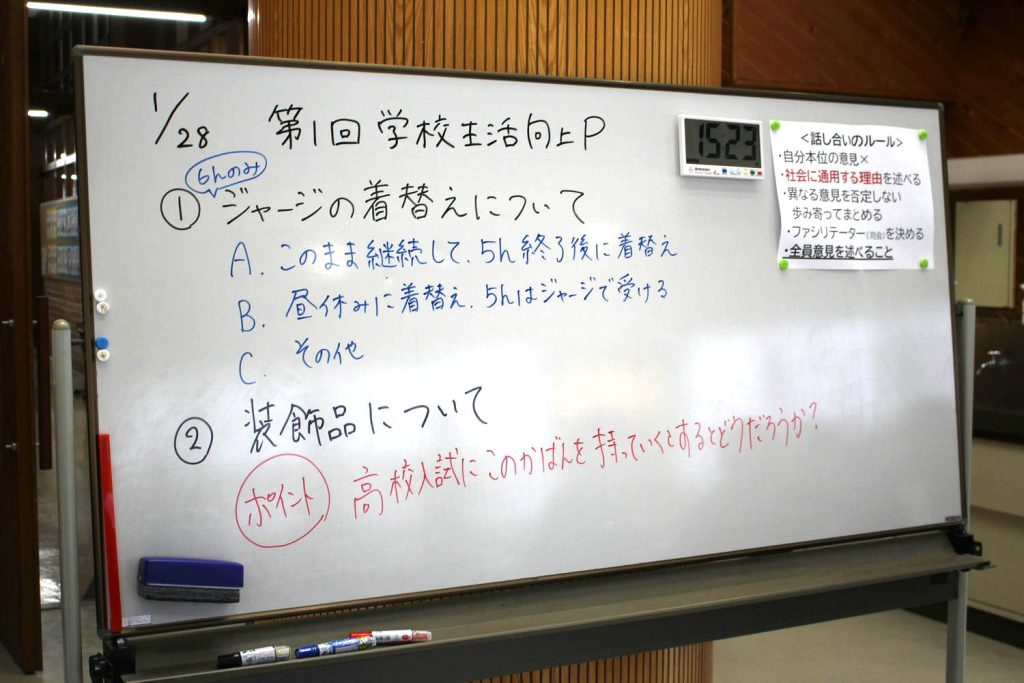 1/28 第1回 学校生活向上P
6hのみ
① ジャージの着替えについて
A. このまま継続して、5h終了後に着替え
B. 昼休みに着替え、5hはジャージで受ける
C. その他
② 装飾品について
ポイント 高校入試にこのかばんを持っていくとするとどうだろうか?
15:23
<話し合いのルール>
・自分本位の意見×
・社会に通用する理由を述べる
・異なる意見を否定しない
歩み寄ってまとめる
・ファシリテーター(司会)を決める
・全員意見を述べること